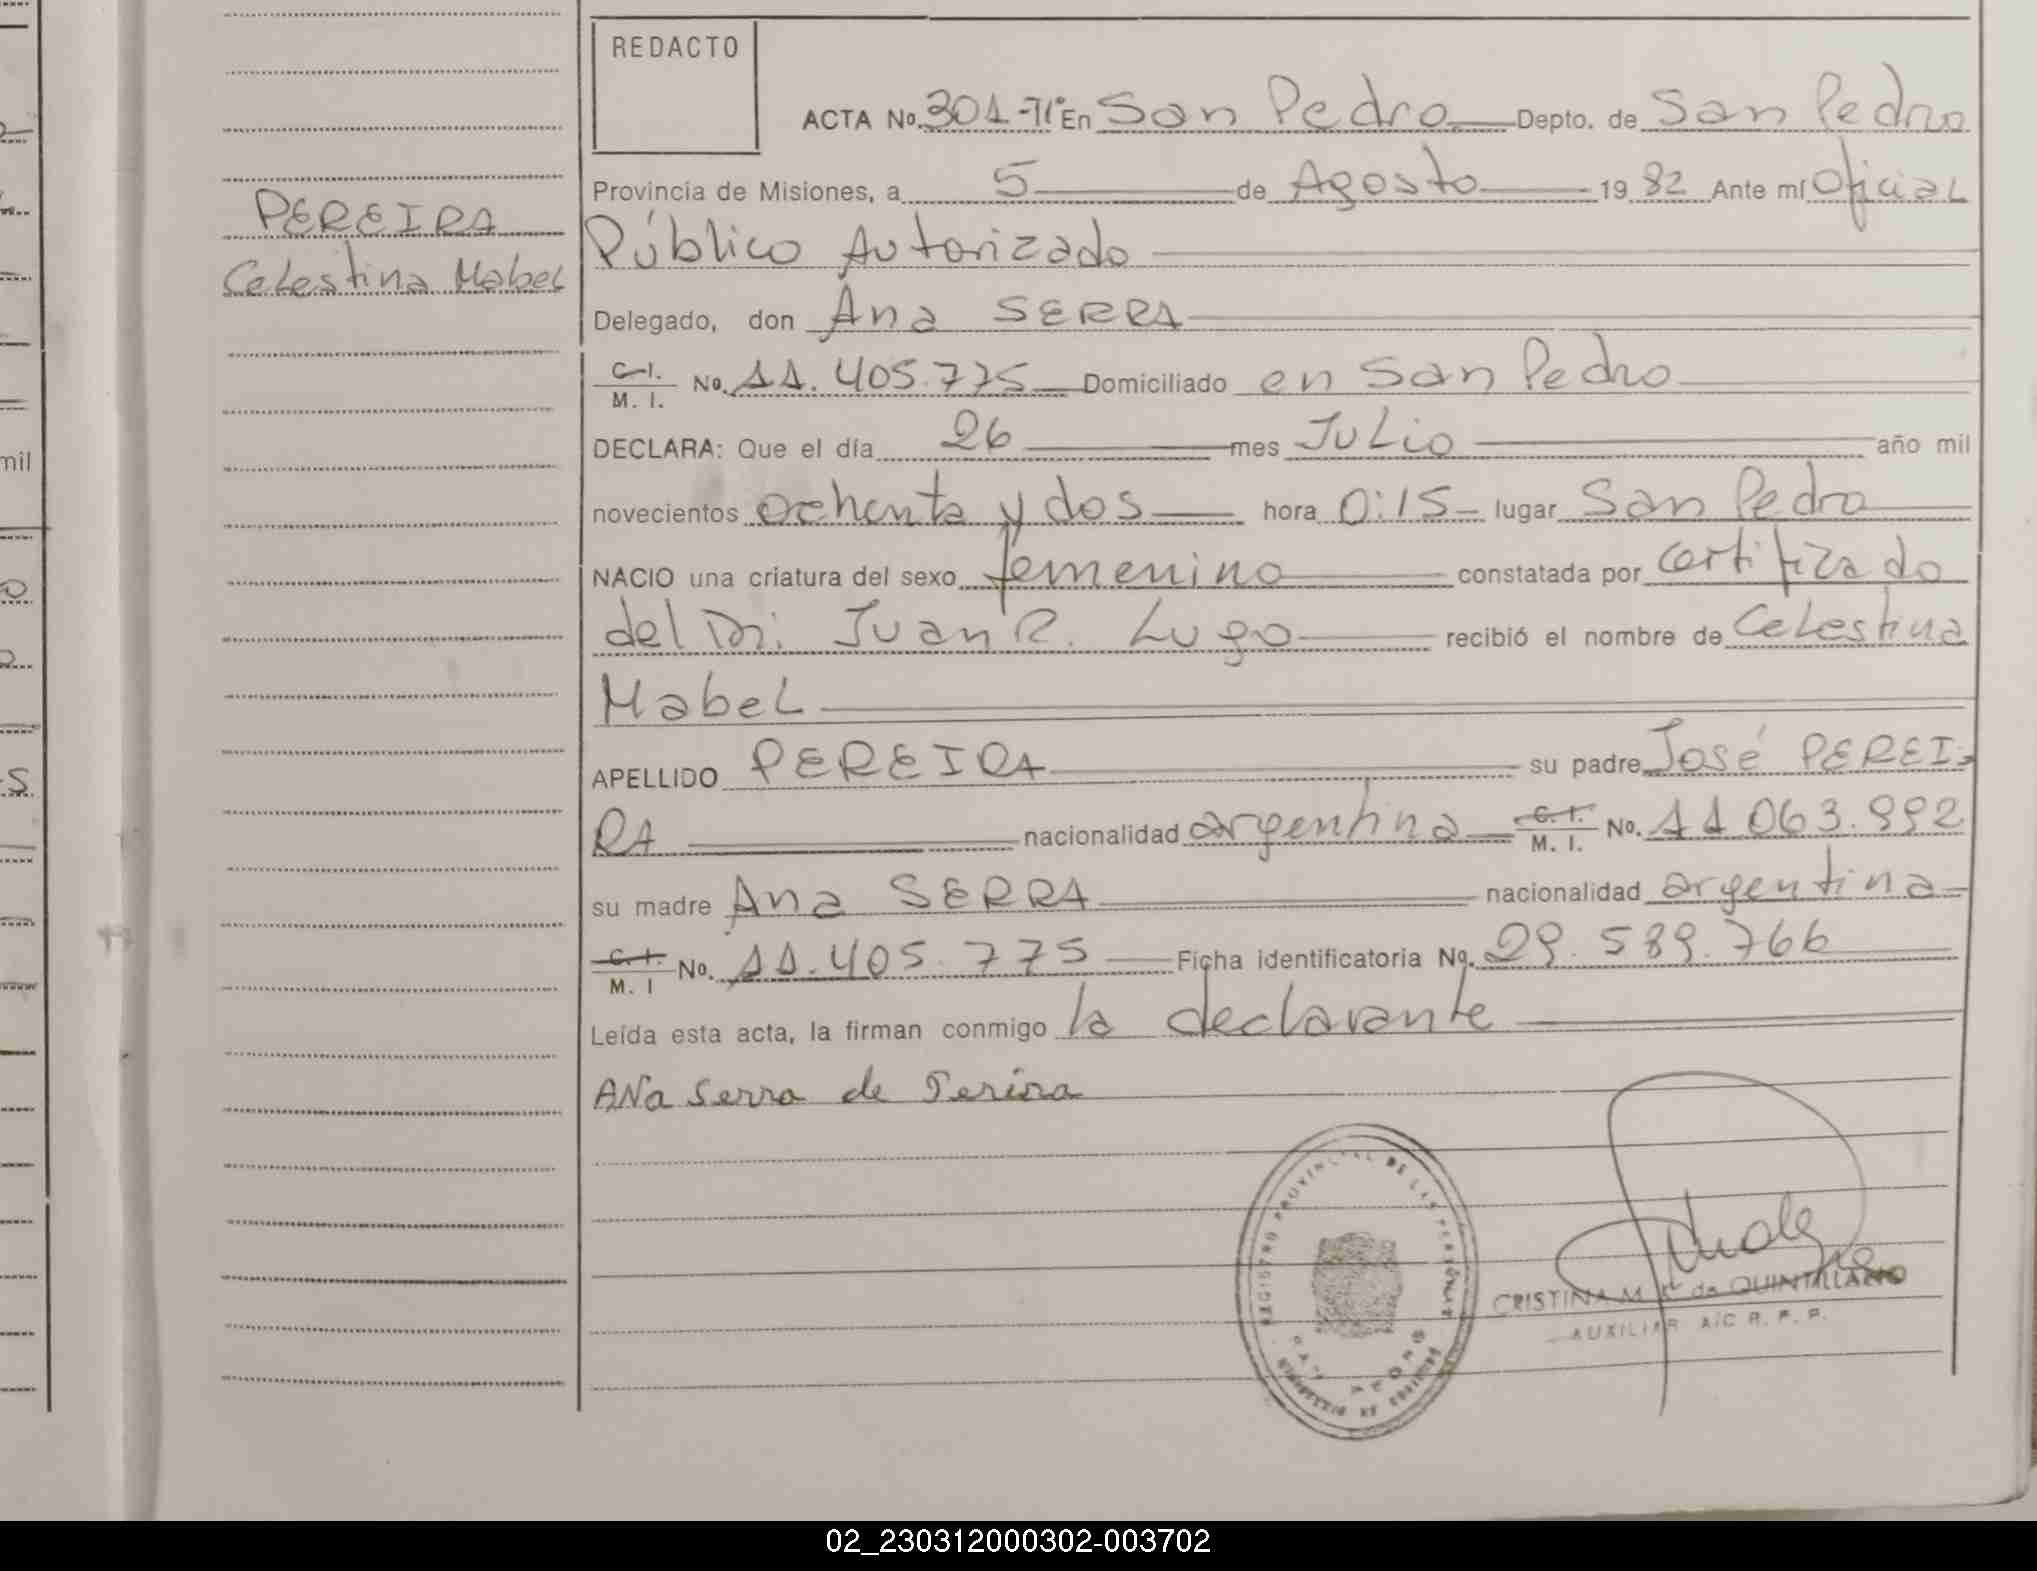 REDACTO
ACTA No. 301-Tº II En San Pedro Depto. de San Pedro
PEREIRA
Celestina Mabel
Provincia de Misiones, a 5 de Agosto 1982 Ante mí Oficial
Público Autorizado
Delegado, don Ana SERRA
C. I. M. I. No. 11.405.775 Domiciliado en San Pedro
DECLARA: Que el día 26 mes Julio año mil
novecientos ochenta y dos hora 0:15 lugar San Pedro
NACIO una criatura del sexo femenino constatada por certifizado
del Dr. Juan R. Lugo recibió el nombre de Celestina
Mabel
APELLIDO PEREIRA su padre José PEREI-
RA nacionalidad argentina C. I. M. I. No. 11.063.992
su madre Ana SERRA nacionalidad argentina
C. I. M. I No. 11.405.775 Ficha identificatoria No. 29.589.766
Leída esta acta, la firman conmigo la declarante
ANa Serra de Perira
REGISTRO PROVINCIAL DE LAS PERSONAS
CRISTINA M. de QUINTILLANO
AUXILIAR A/C R. P. P.
mil
02_230312000302-003702